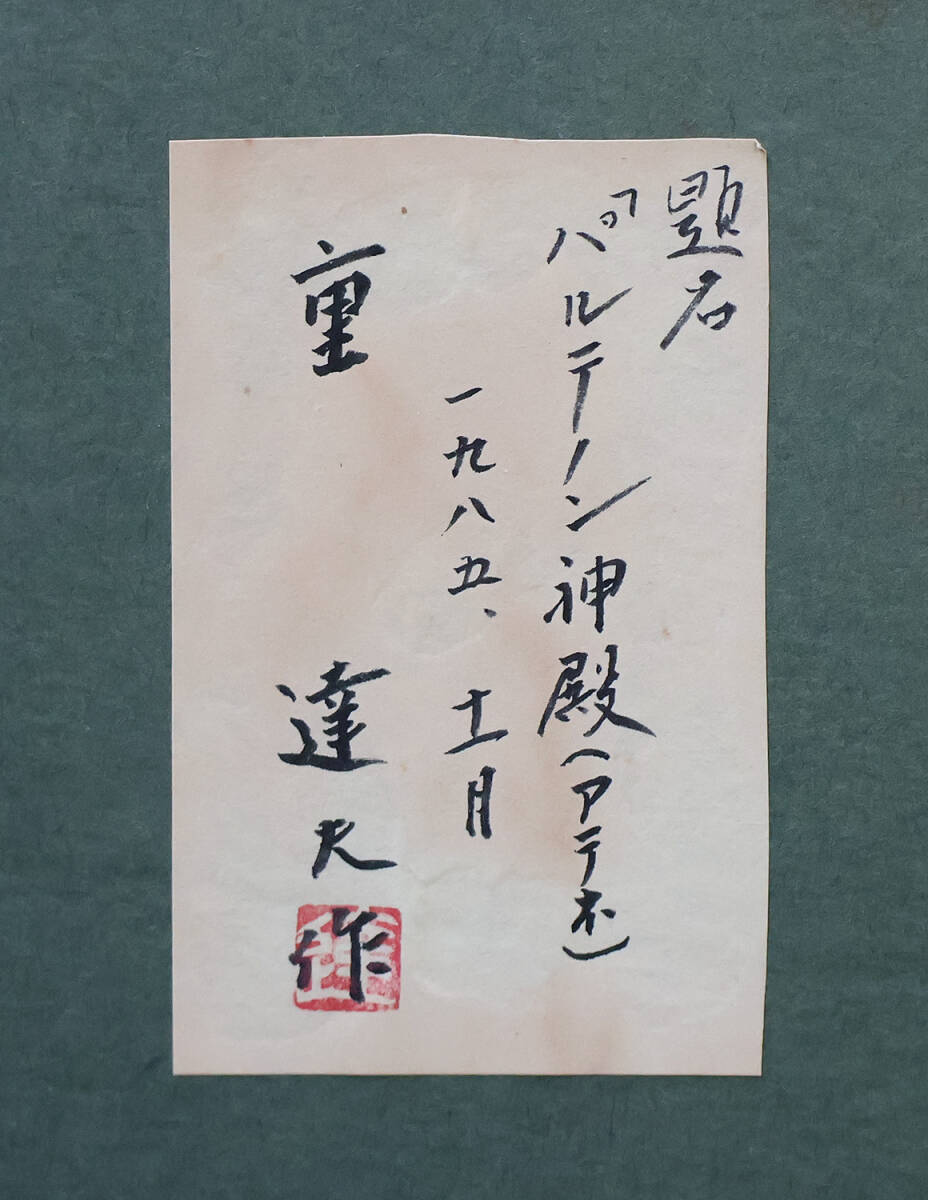 題名
「パルテノン神殿(アテネ)
一九八五、十一月
重 達夫作